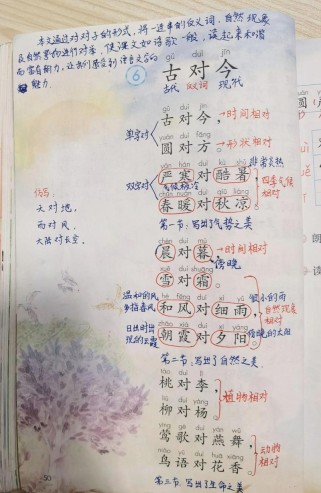 本文通过对对子的形式，将一连串的反义词、自然现象
及自然景物进行对答，使课文如诗歌一般，读起来和谐
而富有魅力，让我们感受到语言文字的
魅力。
gǔ duì jīn
6 古对今
古代 反义词 现代
gǔ duì jīn
单字对 古对今， →时间相对
yuán duì fāng
圆对方。 →形状相对
非常炎热
yán hán duì kù shǔ
双字对 严寒对酷暑， 四季气候
气候极冷 相对
chūn nuǎn duì qiū liáng
春暖对秋凉。
第一节：写出了气势之美
仿写：
天对地，
雨对风，
大陆对长空。
chén duì mù
晨对暮， →时间相对
傍晚
xuě duì shuāng
雪对霜。
温和的风 细小的雨
多指春风 hé fēng duì xì yǔ
和风对细雨， 自然现象
相对
日出时出 zhāo xiá duì xī yáng
现的云霞 朝霞对夕阳。 傍晚的太阳
第二节：写出了自然之美
táo duì lǐ
桃对李，
植物相对
liǔ duì yáng
柳对杨。
yīng gē duì yàn wǔ
莺歌对燕舞，
动物
相对
niǎo yǔ duì huā xiāng
鸟语对花香。
第三节：写出了生命之美
50